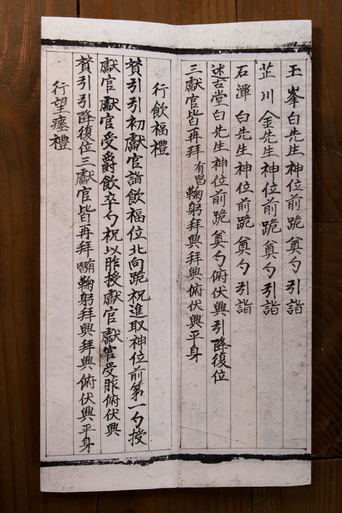 玉峯白先生神位前跪奠勺引詣
芷川金先生神位前跪奠勺引詣
石潭白先生神位前跪奠勺引詣
述古堂白先生神位前跪奠勺俯伏興引降復位
三獻官皆再拜有唱鞠躬拜興拜興俯伏興平身
行飮福禮
贊引引初獻官詣飮福位北向跪祝進取神位前第一勺授
獻官獻官受爵飮卒勺祝以胙授獻官獻官受胙俯伏興
贊引引降復位三獻官皆再拜鞠躬拜興拜興俯伏興平身
行望瘞禮